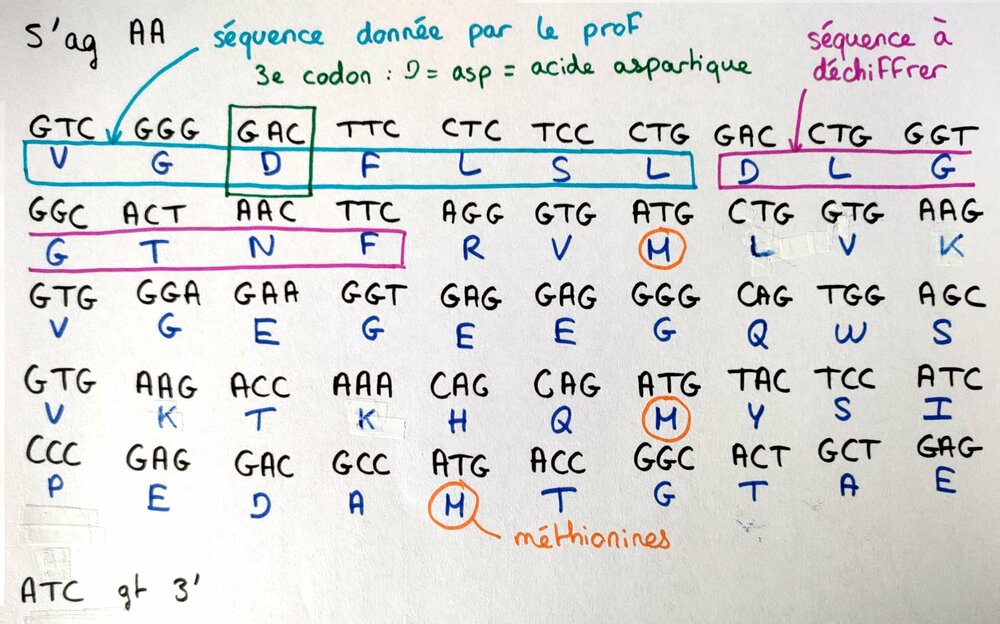 5'ag AA séquence donnée par le prof séquence à
déchiffrer
3e codon : D = asp = acide aspartique
GTC GGG GAC TTC CTC TCC CTG GAC CTG GGT
V G D F L S L D L G
GGC ACT AAC TTC AGG GTG ATG CTG GTG AAG
G T N F R V M L V K
GTG GGA GAA GGT GAG GAG GGG CAG TGG AGC
V G E G E E G Q W S
GTG AAG ACC AAA CAG CAG ATG TAC TCC ATC
V K T K H Q M Y S I
CCC GAG GAC GCC ATG ACC GGC ACT GCT GAG
P E D A M T G T A E
méthionines
ATC gt 3'